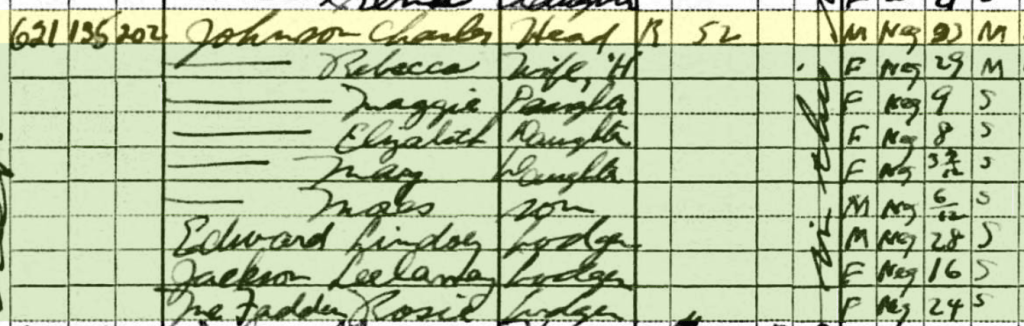 621 135 202 Johnson Charles Head R 52 M Neg M
Rebecca Wife, H F Neg 29 M
Maggie Daughter F Neg 9 S
Elizabeth Daughter F Neg 8 S
Mary Daughter F Neg S
Moses son M Neg 6/12 S
Edward Lindsey Lodger M Neg 28 S
Jackson Lodger F Neg 16 S
McFadden Rosie Lodger F Neg 24 S